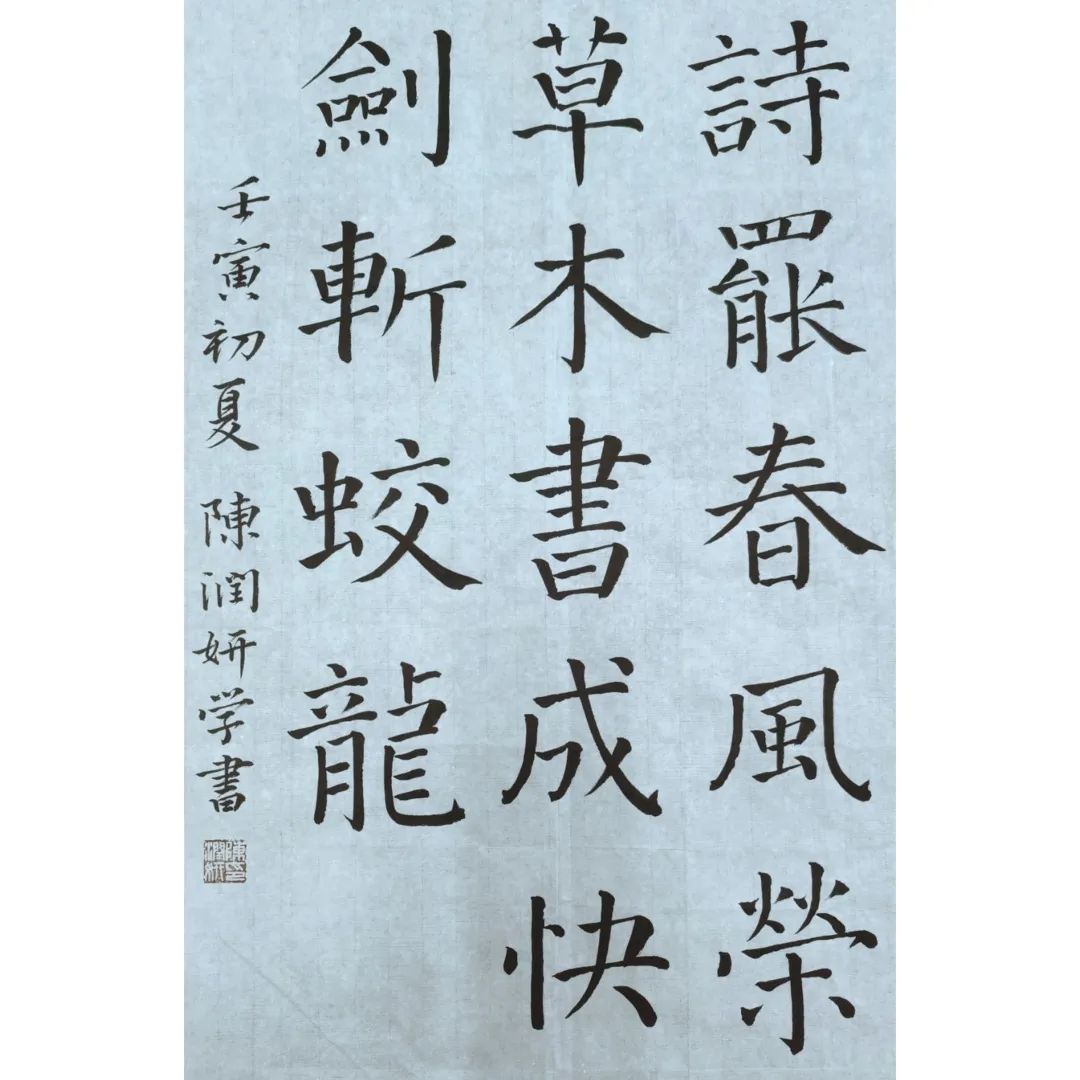 詩罷春風榮
草木書成快
劍斬蛟龍
壬寅初夏 陳潤妍学書